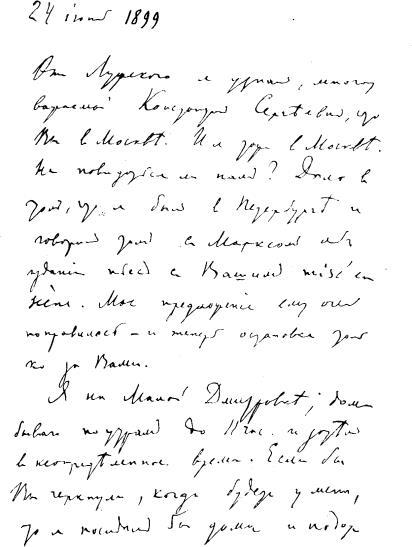 24 июня 1899
От Лужского я узнал, много
уважаемый Константин Сергѣевич, что
Вы в Москвѣ. И я тоже в Москвѣ.
Не повидаться ли нам? Дело в
том, что я был в Петербургѣ и
говорил там с Марксом об
изданіи пьес с Вашими mise en
scène. Мое предложеніе ему очень
понравилось – и теперь остановка толь
ко за Вами.
Я на Малой Дмитровкѣ; дома
бываю по утрам до 11 час. и потом
в неопредѣленное время. Если бы
Вы черкнули, когда будете у меня,
то я посидел бы дома и подож